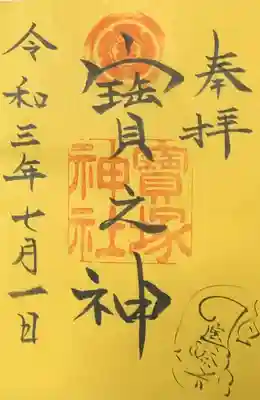 奉拝
寳之神
寳塚
神社
令和三年七月一日